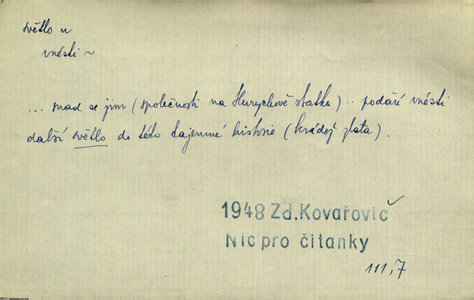 světlo n
vnésti ~
... snad se jim (společnosti na Hurychově statku) .. podaří vnésti
další světlo do této tajemné historie (krádej zlata).
1948 Zd. Kovařovic
Nic pro čítanky
111,7